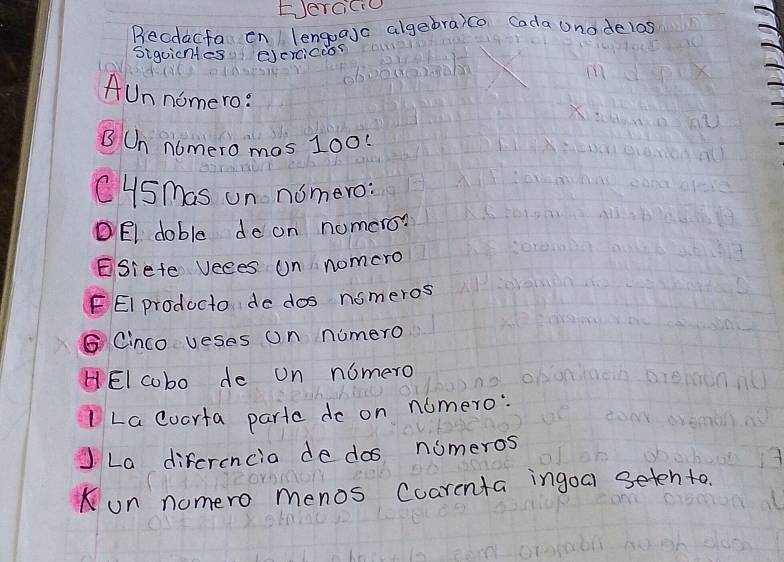 Ejercicio
Redacta en lenguaje algebraico cada uno de los
siguientes ejercicios
A Un número:
B Un número mas 100:
C 45 mas un número:
D El doble de un numero:
E Siete veces un numero
F El producto de dos números
G Cinco veses un número
H El cubo de un número
I La cuarta parte de un número:
J La diferencia de dos números
K Un numero menos cuarenta ingoal setenta.